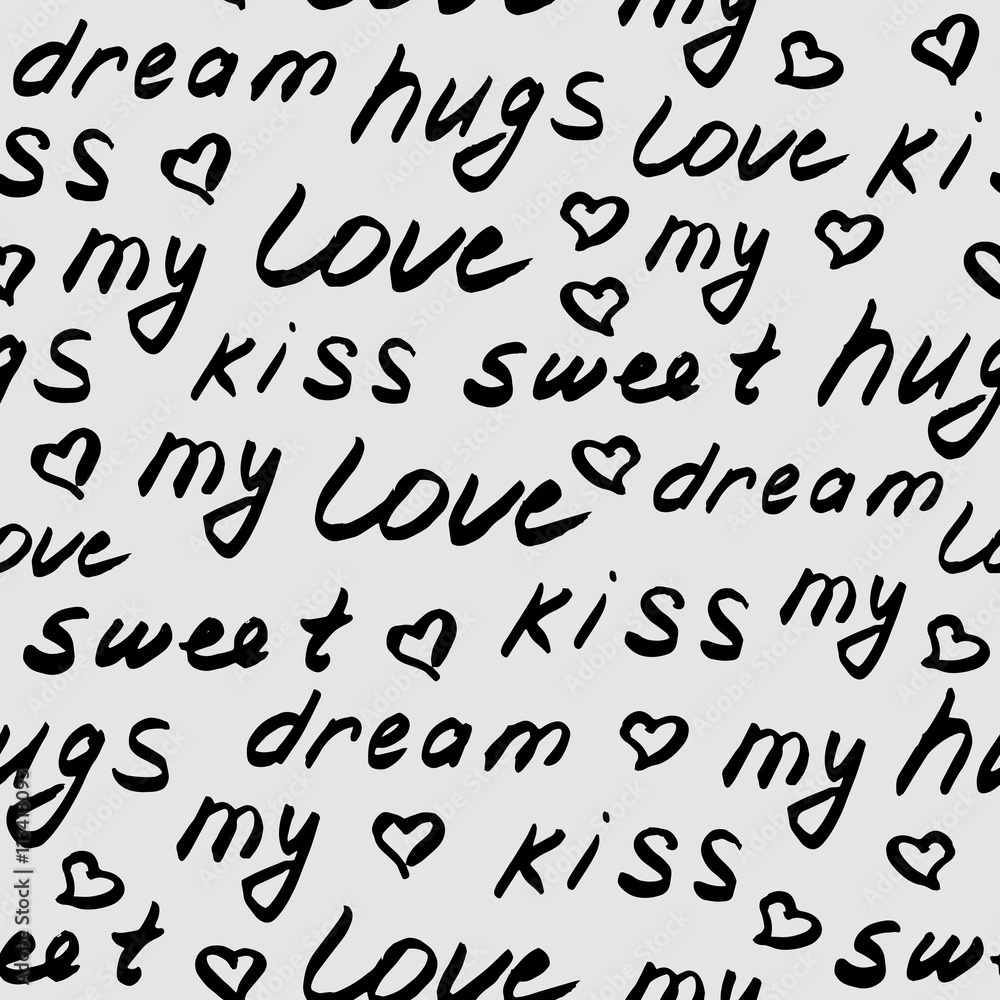 love my
dream hugs love kis
ss
my love my
gs kiss sweet hug
my love dream lo
ove
sweet kiss my
ugs dream my hu
my kiss
eet love my swe
Adobe Stock